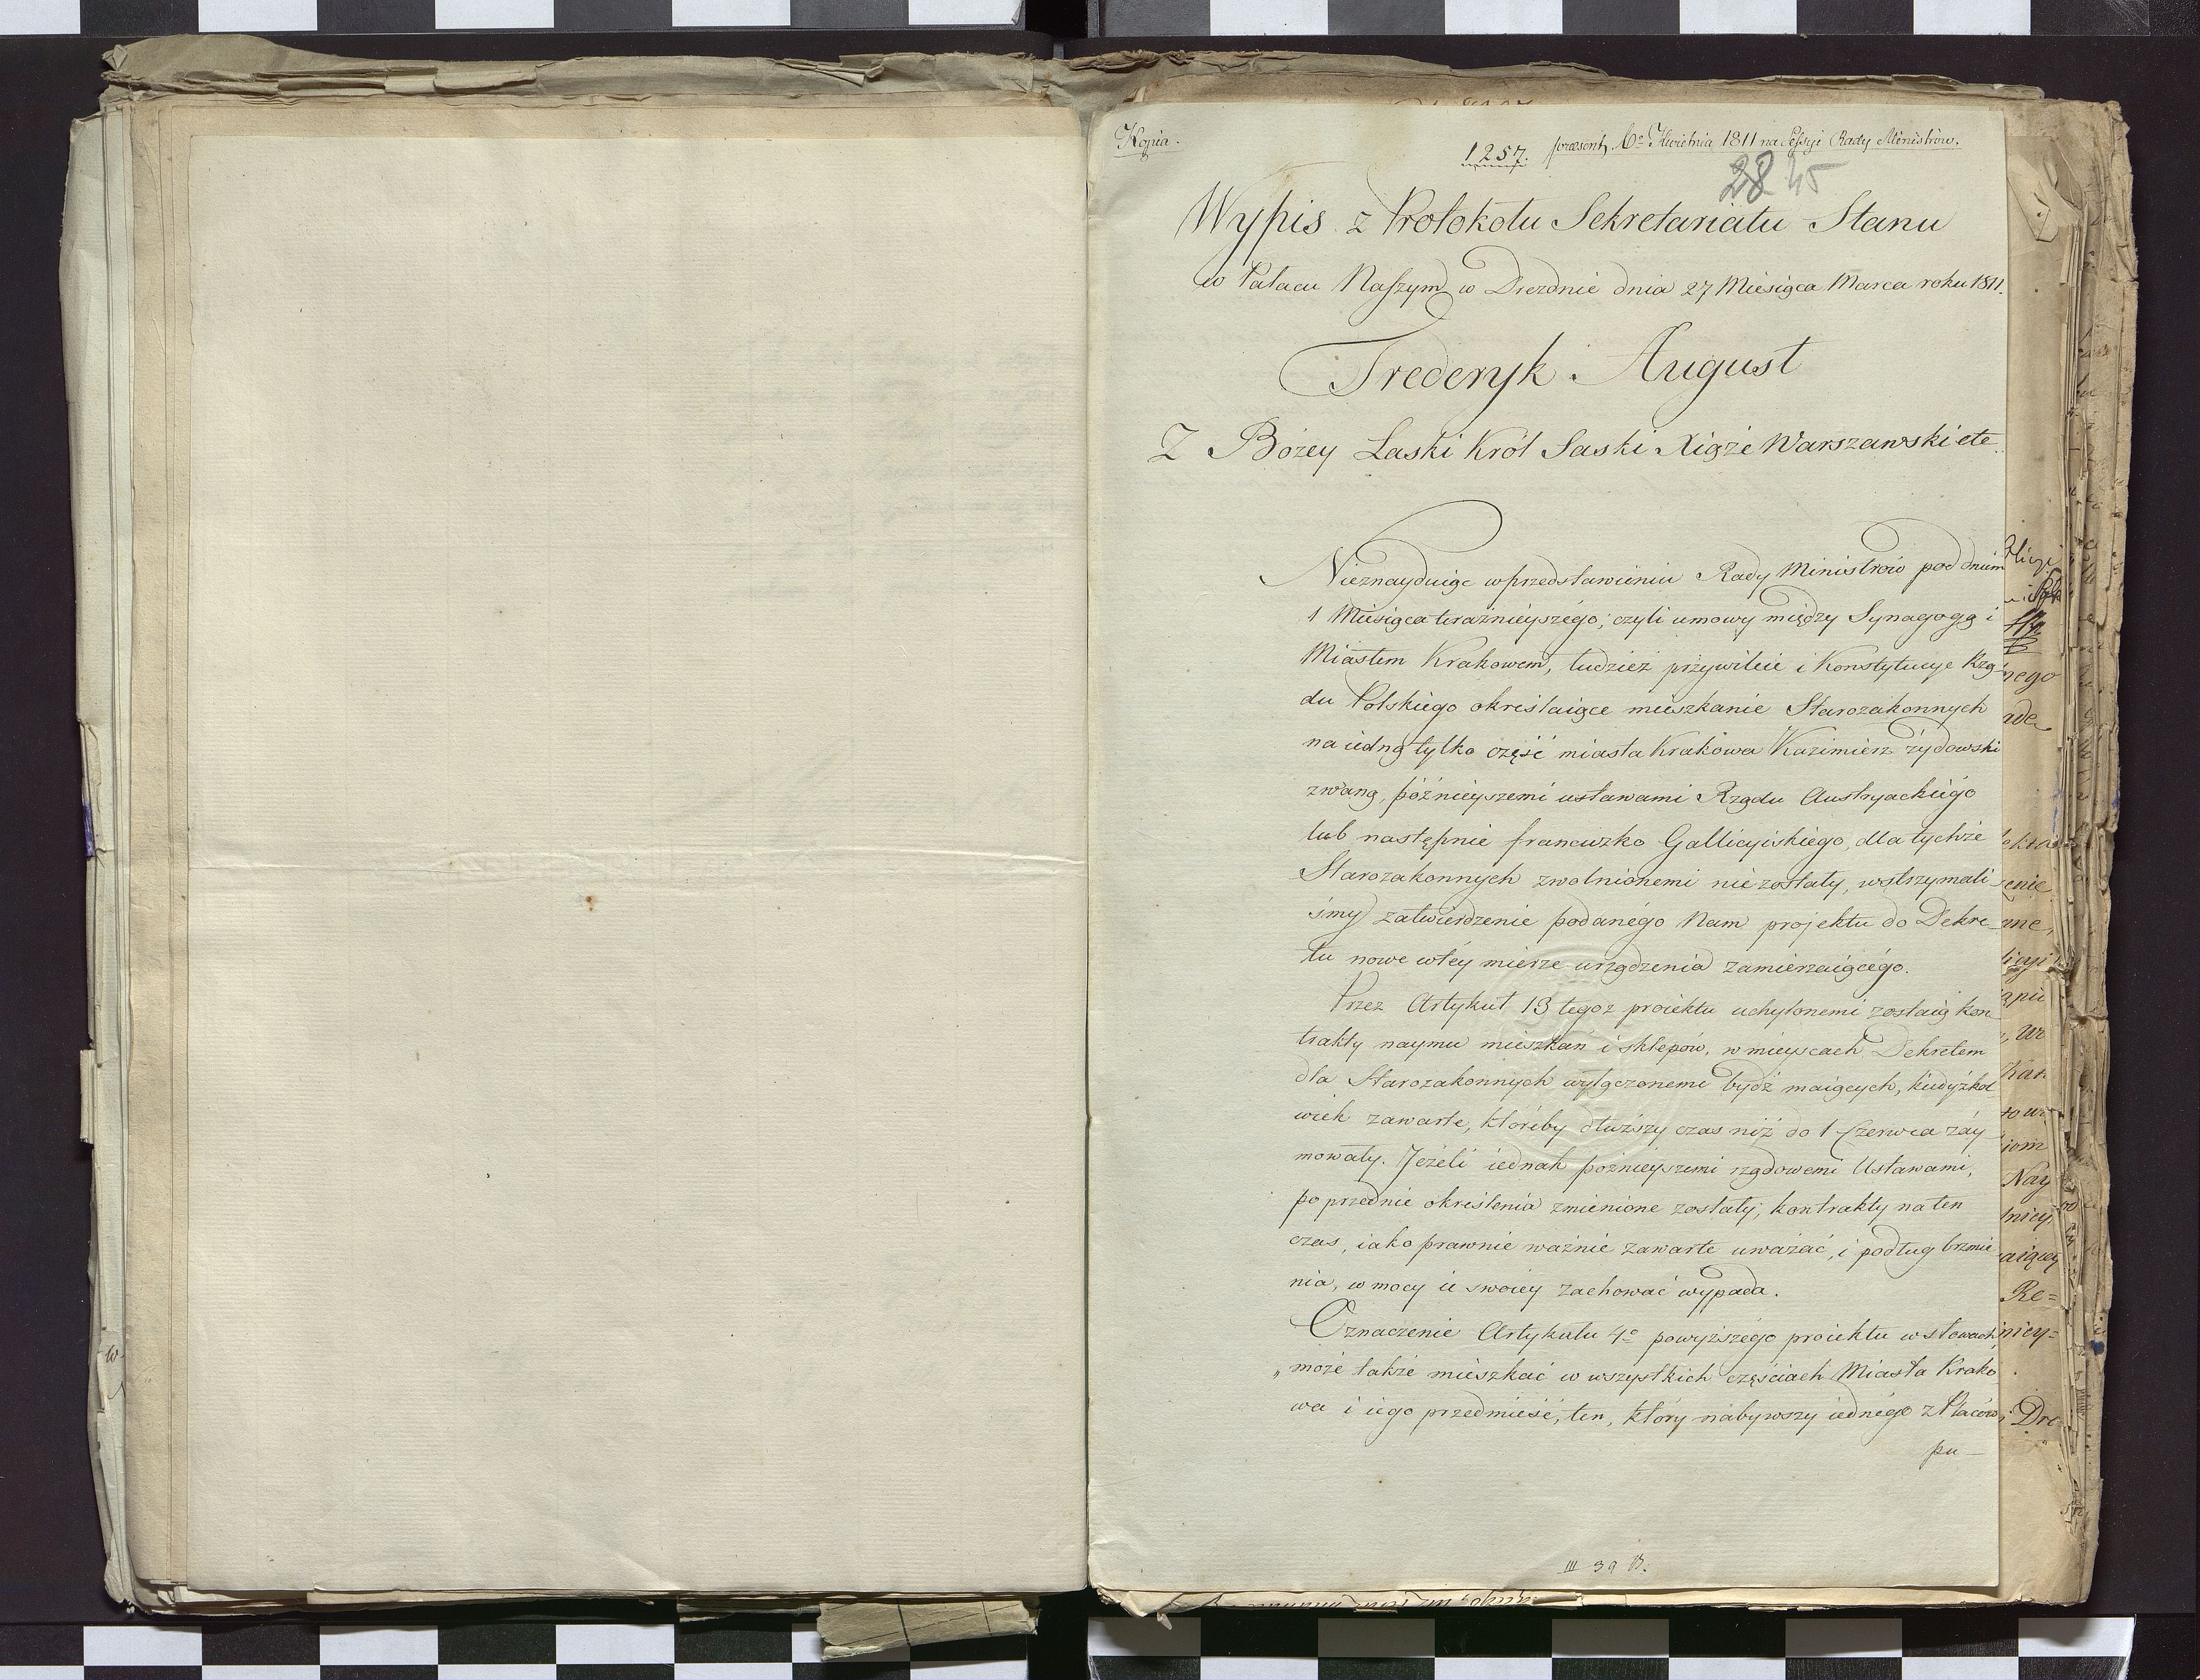 Kopia.
1257. præsent. 6º Kwietnia 1811 na Sessyi Rady Ministrów.
28 45
Wypis z Protokołu Sekretariatu Stanu
w Pałacu Naszym w Dreznie dnia 27 Miesiąca Marca roku 1811.
Frederyk August
Z Bożey Łaski Król Saski Xiąże Warszawski etc.
Nieznayduiąc w przedstawieniu Rady Ministrów pod dniem
1 Miesiąca teraźnieyszégo; czyli umowy między Synagogą i
Miastem Krakowem, tudzież przywileie i Konstytucye Rzą-
du Polskiego określaiące mieszkanie Starozakonnych
na iedną tylko część miasta Krakowa Kazimierz żydowski
zwaną, późnieyszemi ustawami Rządu Austryackiégo
lub następnie francuzko Gallicyiskiego, dla tychże
Starozakonnych zwolnionemi nie zostały, wstrzymali
śmy zatwierdzenie podanégo Nam projektu do Dekre-
tu nowe w téy mierze urządzenia zamierzaiącégo.
Przez Artykuł 13 tegoż proiektu uchylonemi zostaią kon
trakty naymu mieszkań i sklepów, w mieyscach Dekretem
dla Starozakonnych wyłączonemi bydź maiących, kiedyżkol
wiek zawarte, któréby dłuższy czas niż do 1 Czerwca zay
mowały. Jeżeli iednak późnieyszemi rządowemi Ustawami,
poprzednie określenia zmienione zostały; kontrakty na ten
czas, iako prawnie ważnie zawarte uważać, i podług brzmie
nia, w mocy ie swoiey zachować wypada.
Oznaczenie Artykułu 4º powyższégo proiektu w słowach
„może także mieszkać w wszystkich częściach Miasta Krako
wa i iego przedmieść, ten, który nabywszy iednégo z Placów
pu-
III 39 B.